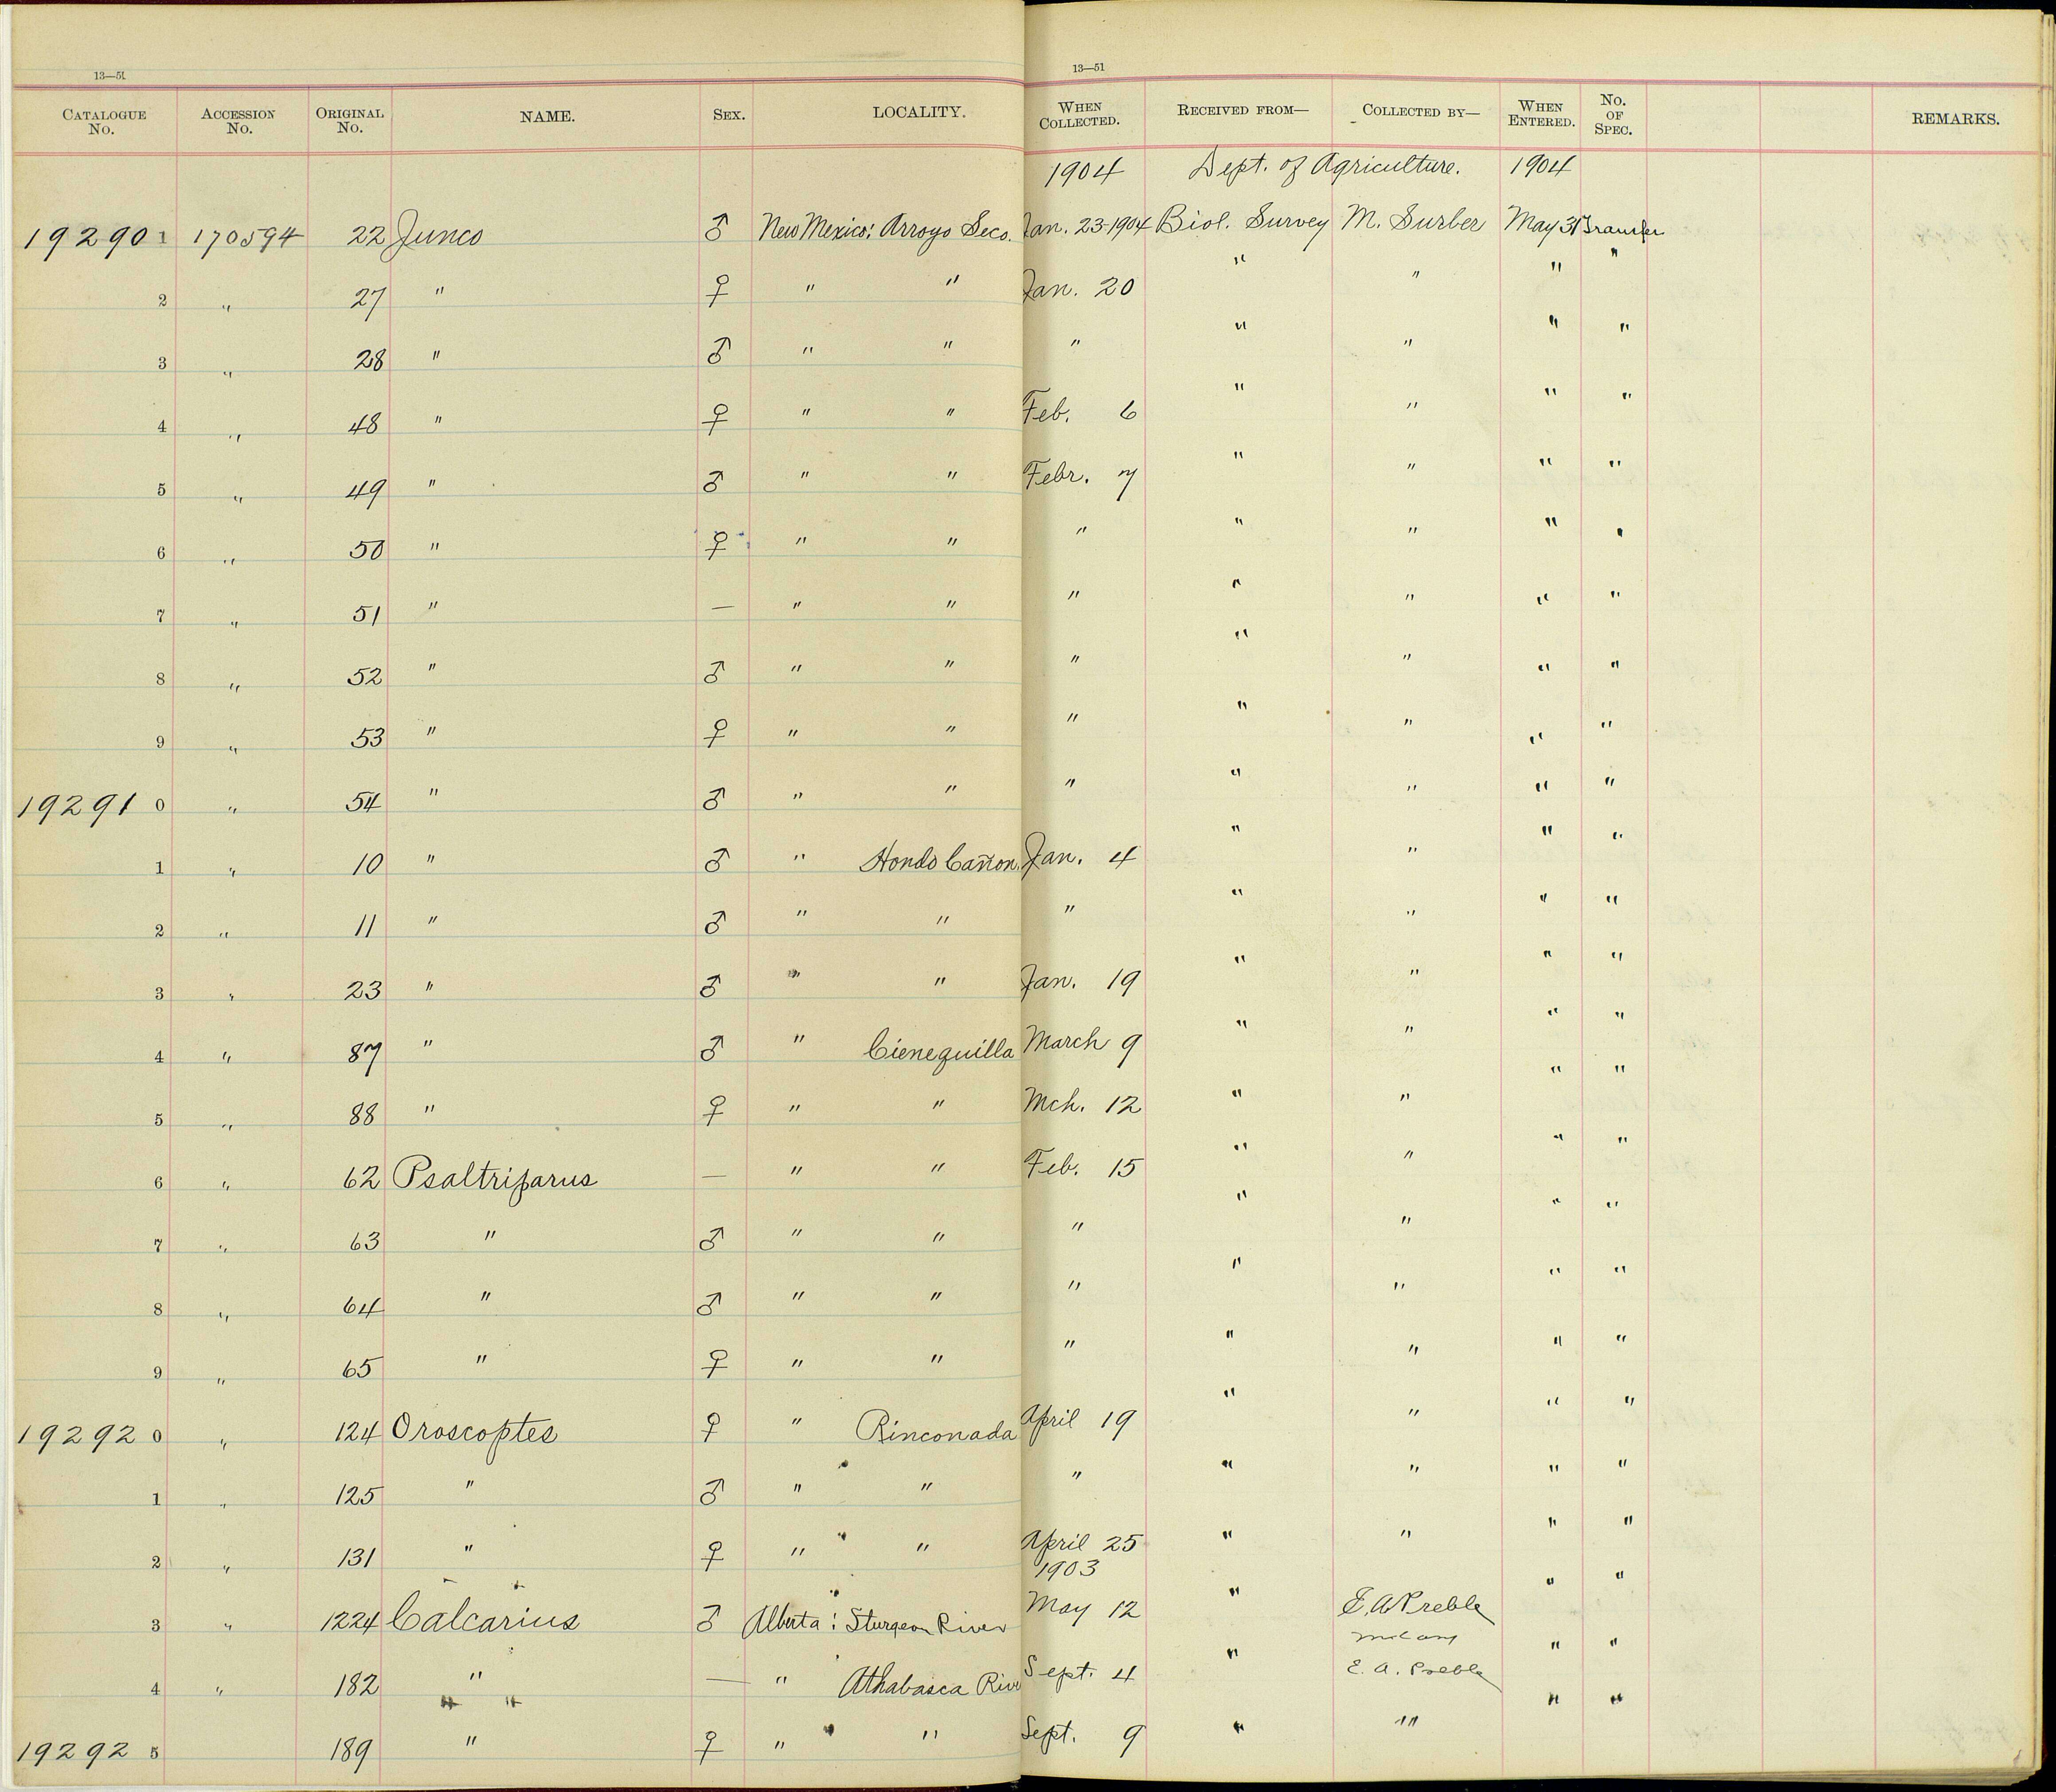 13—51 13—51
CATALOGUE No. ACCESSION No. ORIGINAL No. NAME. SEX. LOCALITY. WHEN COLLECTED. RECEIVED FROM— COLLECTED BY— WHEN ENTERED. No. OF SPEC. REMARKS.
1904 Dept. of Agriculture. 1904
19290 1 170594 22 Junco ♂ New Mexico: Arroyo Seco. Jan. 23-1904 Biol. Survey M. Surber May 31 Transfer
2 " 27 " ♀ " " Jan. 20 " " " "
3 " 28 " ♂ " " " " " " "
4 " 48 " ♀ " " Feb. 6 " " " "
5 " 49 " ♂ " " Febr. 7 " " " "
6 " 50 " ♀ " " " " " " "
7 " 51 " — " " " " " " "
8 " 52 " ♂ " " " " " " "
9 " 53 " ♀ " " " " " " "
19291 0 " 54 " ♂ " " " " " " "
1 " 10 " ♂ " Hondo Cañon. Jan. 4 " " " "
2 " 11 " ♂ " " " " " " "
3 " 23 " ♂ " " Jan. 19 " " " "
4 " 87 " ♂ " Cieneguilla March 9 " " " "
5 " 88 " ♀ " " Mch. 12 " " " "
6 " 62 Psaltriparus — " " Feb. 15 " " " "
7 " 63 " ♂ " " " " " " "
8 " 64 " ♂ " " " " " " "
9 " 65 " ♀ " " " " " " "
19292 0 " 124 Oroscoptes ♀ " Rinconada April 19 " " " "
1 " 125 " ♂ " " " " " " "
2 " 131 " ♀ " " April 25 " " " "
1903
3 " 1224 Calcarius ♂ Alberta: Sturgeon River May 12 " E. A. Preble " "
4 " 182 " — " Athabasca Rive Sept. 4 " E. A. Preble " "
19292 5 189 " ♀ " " Sept. 9 " " " "